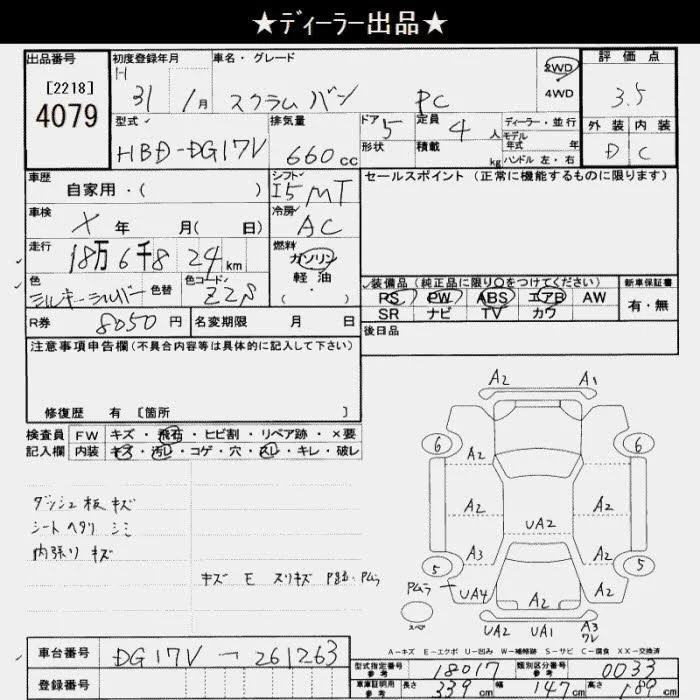 ★ディーラー出品★
出品番号
[2218]
4079
初度登録年月
H
31 / 1月
車名・グレード
スクラムバン PC
2WD
4WD
評価点
3.5
外装 内装
D C
型式
HBD-DG17V
排気量
660cc
ドア 5
形状
定員 4人
積載 kg
ディーラー・並行
モデル
年式 年
ハンドル 左・右
車歴
自家用・( )
シフト
I5 MT
セールスポイント (正常に機能するものに限ります)
車検
X 年 月( 日)
冷房
AC
走行
18万6千824km
燃料
ガソリン
軽油
( ・ )
色
ミルキーシルバー
色替
色コード
Z2S
装備品 (純正品に限り○をつけてください)
PS PW ABS エアB AW
SR ナビ TV カワ
新車保証書
有・無
R券 8050円
名変期限 月 日
後日品
注意事項申告欄(不具合内容等は具体的に記入して下さい)
修復歴 有 [箇所 ]
検査員
記入欄
FW キズ・飛石・ヒビ割・リペア跡・×要
内装 キズ・汚レ・コゲ・穴・スレ・キレ・破レ
ダッシュ板 キズ
シート ヘタリ シミ
内張り キズ
キズ E スリキズ
Pムラ
A2 A1
6 6
A2
A2 A2
UA2
A3 A2
5 5
Pムラ UA4 A2 A2
スペア
UA2 UA1 A3
ワレ
A－キズ E－エクボ U－凹み W－補修跡 S－サビ C－腐食 XX－交換済
車台番号
DG17V-261263
登録番号
型式指定番号
参考
18017
類別区分番号
参考
0033
車庫証明用
参考
長さ 339cm 幅 147cm 高さ 180cm